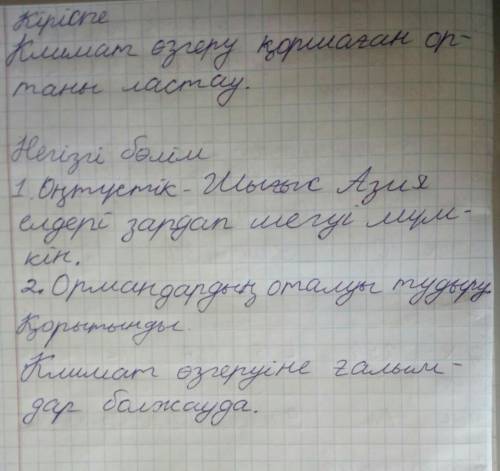 Кіріспе
Климат өзгеру қоршаған ор-
таны ластау.
Негізгі бөлім
1. Оңтүстік-Шығыс Азия
елдері зардап шегуі мүм-
кін.
2. Ормандардың оталуы тудыру.
Қорытынды.
Климат өзгеруіне ғалым-
дар болжауда.